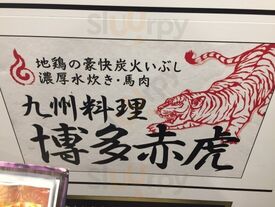 地鶏の豪快炭火いぶし
濃厚水炊き・馬肉
九州料理
博多赤虎
slurrpy